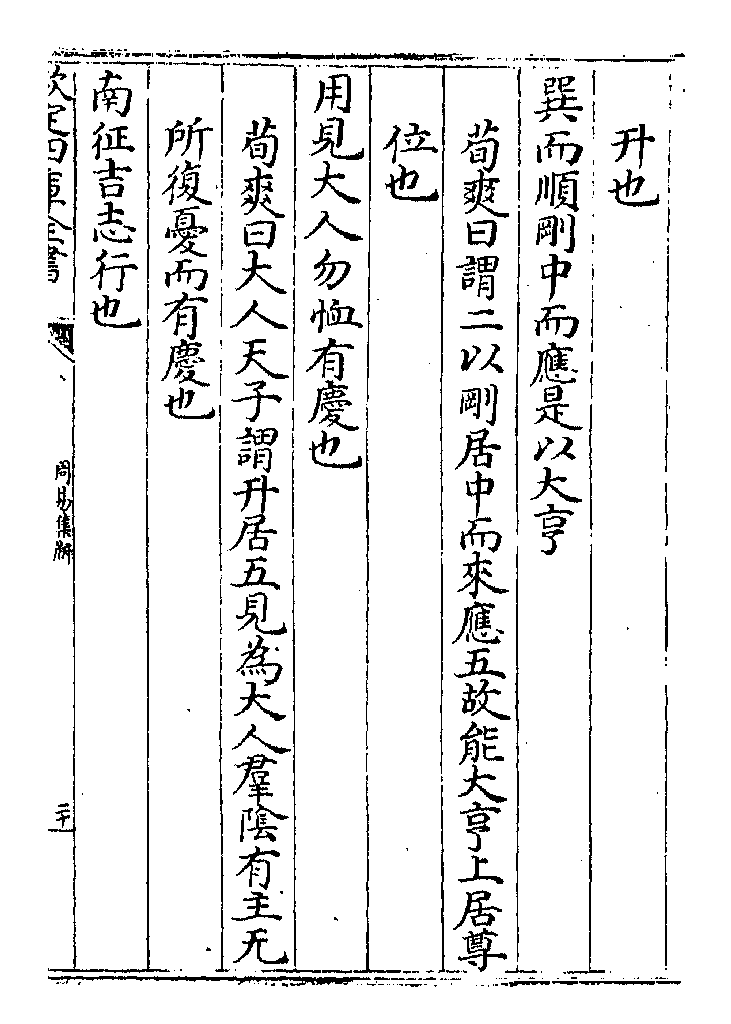 升也
巽而順剛中而應是以大亨
荀爽曰謂二以剛居中而來應五故能大亨上居尊
位也
用見大人勿恤有慶也
荀爽曰大人天子謂升居五見為大人羣陰有主无
所復憂而有慶也
南征吉志行也
欽定四庫全書
周易集解
二十